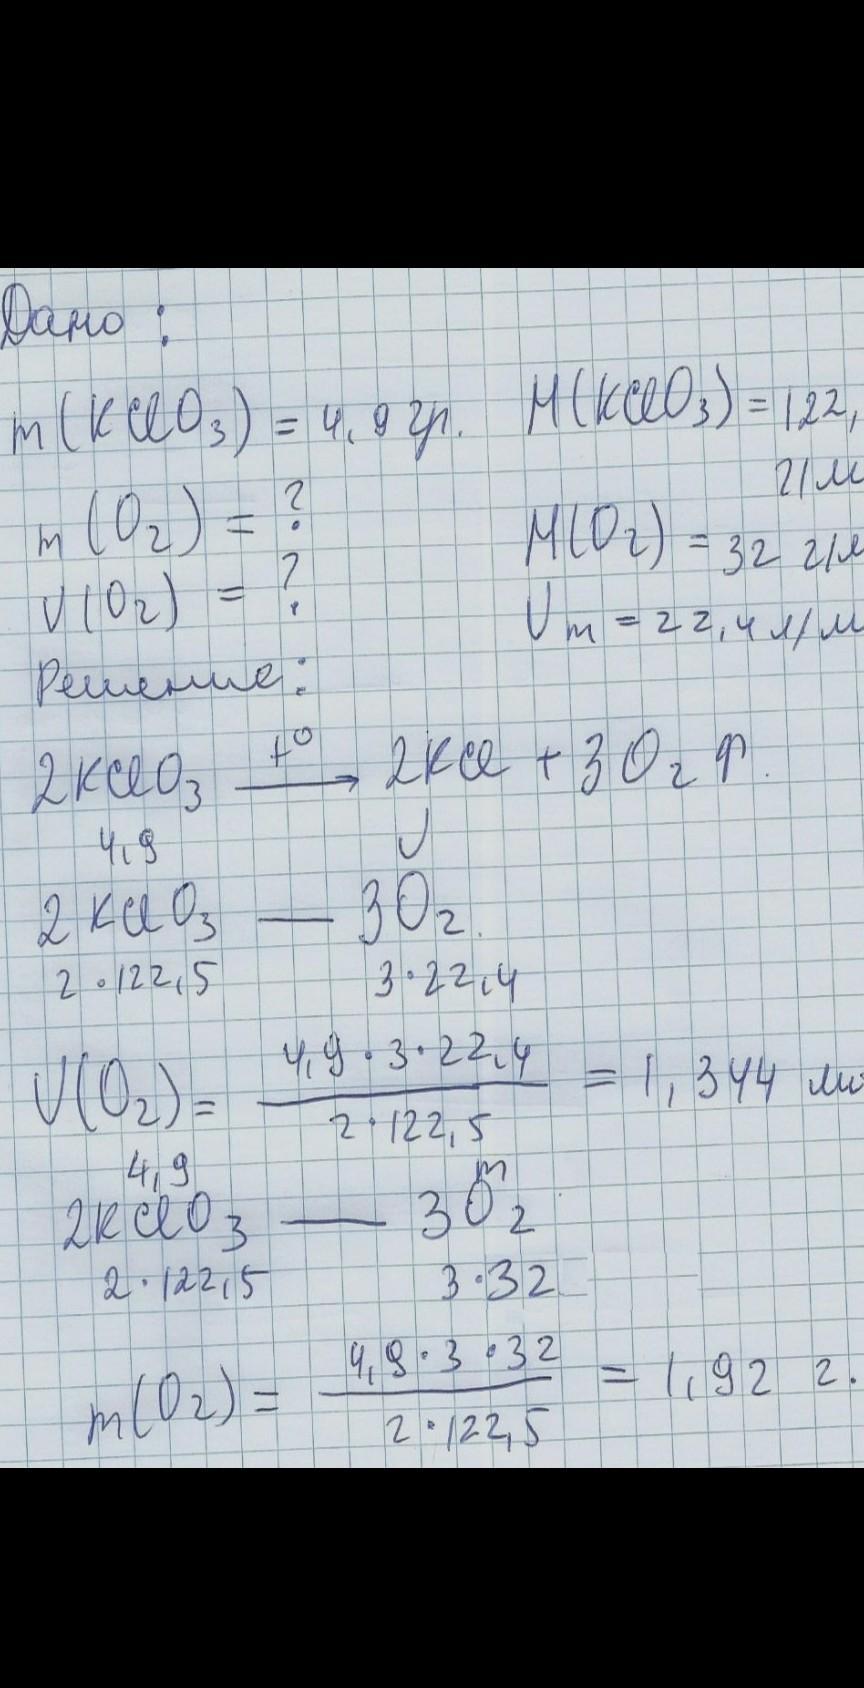 Дано:
m(KClO3) = 4,9 гр. M(KClO3) = 122,
г/м
m(O2) = ? M(O2) = 32 г/м
V(O2) = ? Vm = 22,4 л/м
Решение:
2KClO3 —t°→ 2KCl + 3O2 ↑.
4,9 V
2KClO3 — 3O2.
2·122,5 3·22,4
V(O2) = 4,9·3·22,4 / 2·122,5 = 1,344
4,9 m
2KClO3 — 3O2
2·122,5 3·32
m(O2) = 4,9·3·32 / 2·122,5 = 1,92 г.